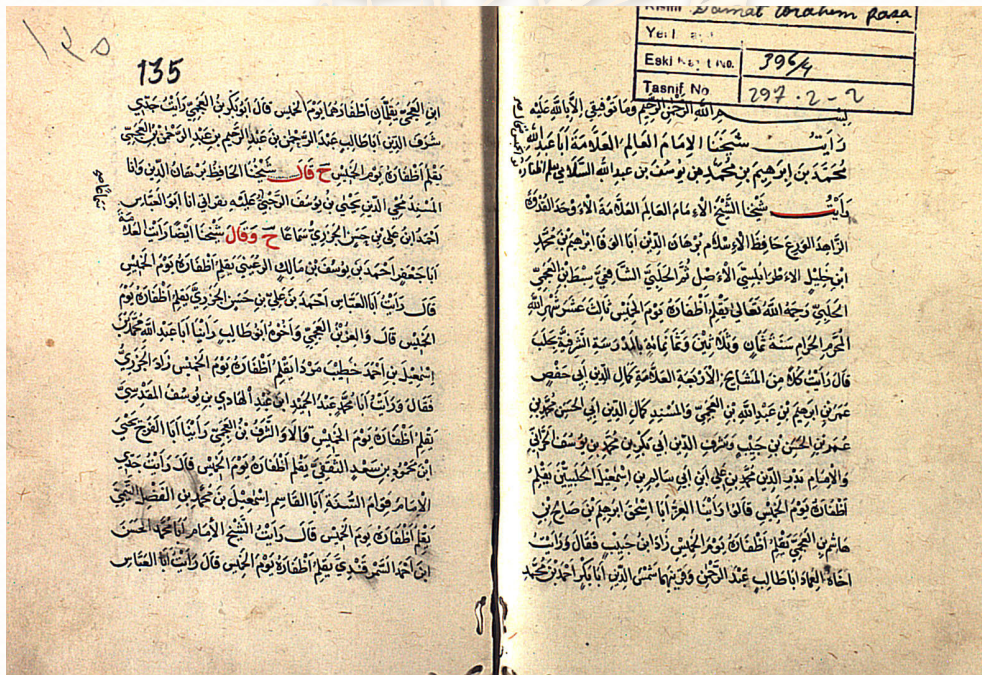 Damat Ibrahem Paşa
Yeni
Eski No. 396/4
Tasnif No 297.2-2
بسم الله الرحمن الرحيم وما توفيقي إلا بالله عليه
رأيت شيخنا الإمام العالم العلامة أبا عبد الله
محمد بن إبراهيم بن محمد بن يوسف بن عبد الله السلامي يقلم أظفاره
رأيت شيخنا الشيخ الإمام العالم العلامة الأوحد القدوة
الزاهد الورع حافظ الإسلام برهان الدين أبا الوفا إبرهيم بن محمد
ابن خليل الأطرابلسي الأصل ثم الحلبي الشافعي سبط ابن العجمي
الحلبي رحمه الله تعالى يقلم أظفاره يوم الخميس ثالث عشر شهر الله
المحرم الحرام سنة ثمان وثلاثين وثمانمائة بالمدرسة الشرفية بحلب
قال رأيت كلا من المشايخ الأربعة العلامة كمال الدين أبي حفص
عمر بن إبراهيم بن عبد الله بن العجمي والمسند كمال الدين أبي الحسن محمد بن
عمر بن الحسن بن حبيب وشرف الدين أبي بكر بن محمد بن يوسف الحراني
والإمام بدر الدين محمد بن علي ابن أبي سالم بن إسمعيل الحلبيين يقلم
أظفاره يوم الخميس قالوا رأينا العز أبا إسحق إبرهيم بن صالح بن
هاشم بن العجمي يقلم أظفاره يوم الخميس زاد ابن حبيب فقال ورأيت
أخاه العماد أبا طالب عبد الرحمن وقريبهما شمس الدين أبا بكر أحمد بن محمد
١٣٥
135
ابن العجمي يقلمان أظفارهما يوم الخميس قال أبو بكر بن العجمي رأيت جدي
شرف الدين أبا طالب عبد الرحمن بن عبد الرحيم بن عبد الرحمن بن العجمي
يقلم أظفاره يوم الخميس ح قال شيخنا الحافظ برهان الدين وأنا
المسند محيي الدين يحيى بن يوسف الرحبي عليه بقراتي أنا أبو العباس
أحمد ابن علي بن حسن الجزري سماعا ح وقال شيخنا أيضا رأيت العلامة
أبا جعفر أحمد بن يوسف بن مالك الرعيني يقلم أظفاره يوم الخميس
قال رأيت أبا العباس أحمد بن علي بن حسن الجزري يقلم أظفاره يوم
الخميس قال والعز بن العجمي وأخوه أبو طالب رأينا أبا عبد الله محمد بن
إسمعيل بن أحمد خطيب مردا يقلم أظفاره يوم الخميس زاد الجزري
فقال ورأيت أبا محمد عبد الحميد ابن عبد الهادي بن يوسف المقدسي
يقلم أظفاره يوم الخميس قالا والشرف بن العجمي رأينا أبا الفرج يحيى
ابن محمود بن سعد الثقفي يقلم أظفاره يوم الخميس قال رأيت جدي
الإمام قوام السنة أبا القاسم إسمعيل بن محمد بن الفضل التيمي
يقلم أظفاره يوم الخميس قال رأيت الشيخ الإمام أبا محمد الحسن
ابن أحمد السمرقندي يقلم أظفاره يوم الخميس قال رأيت أبا العباس